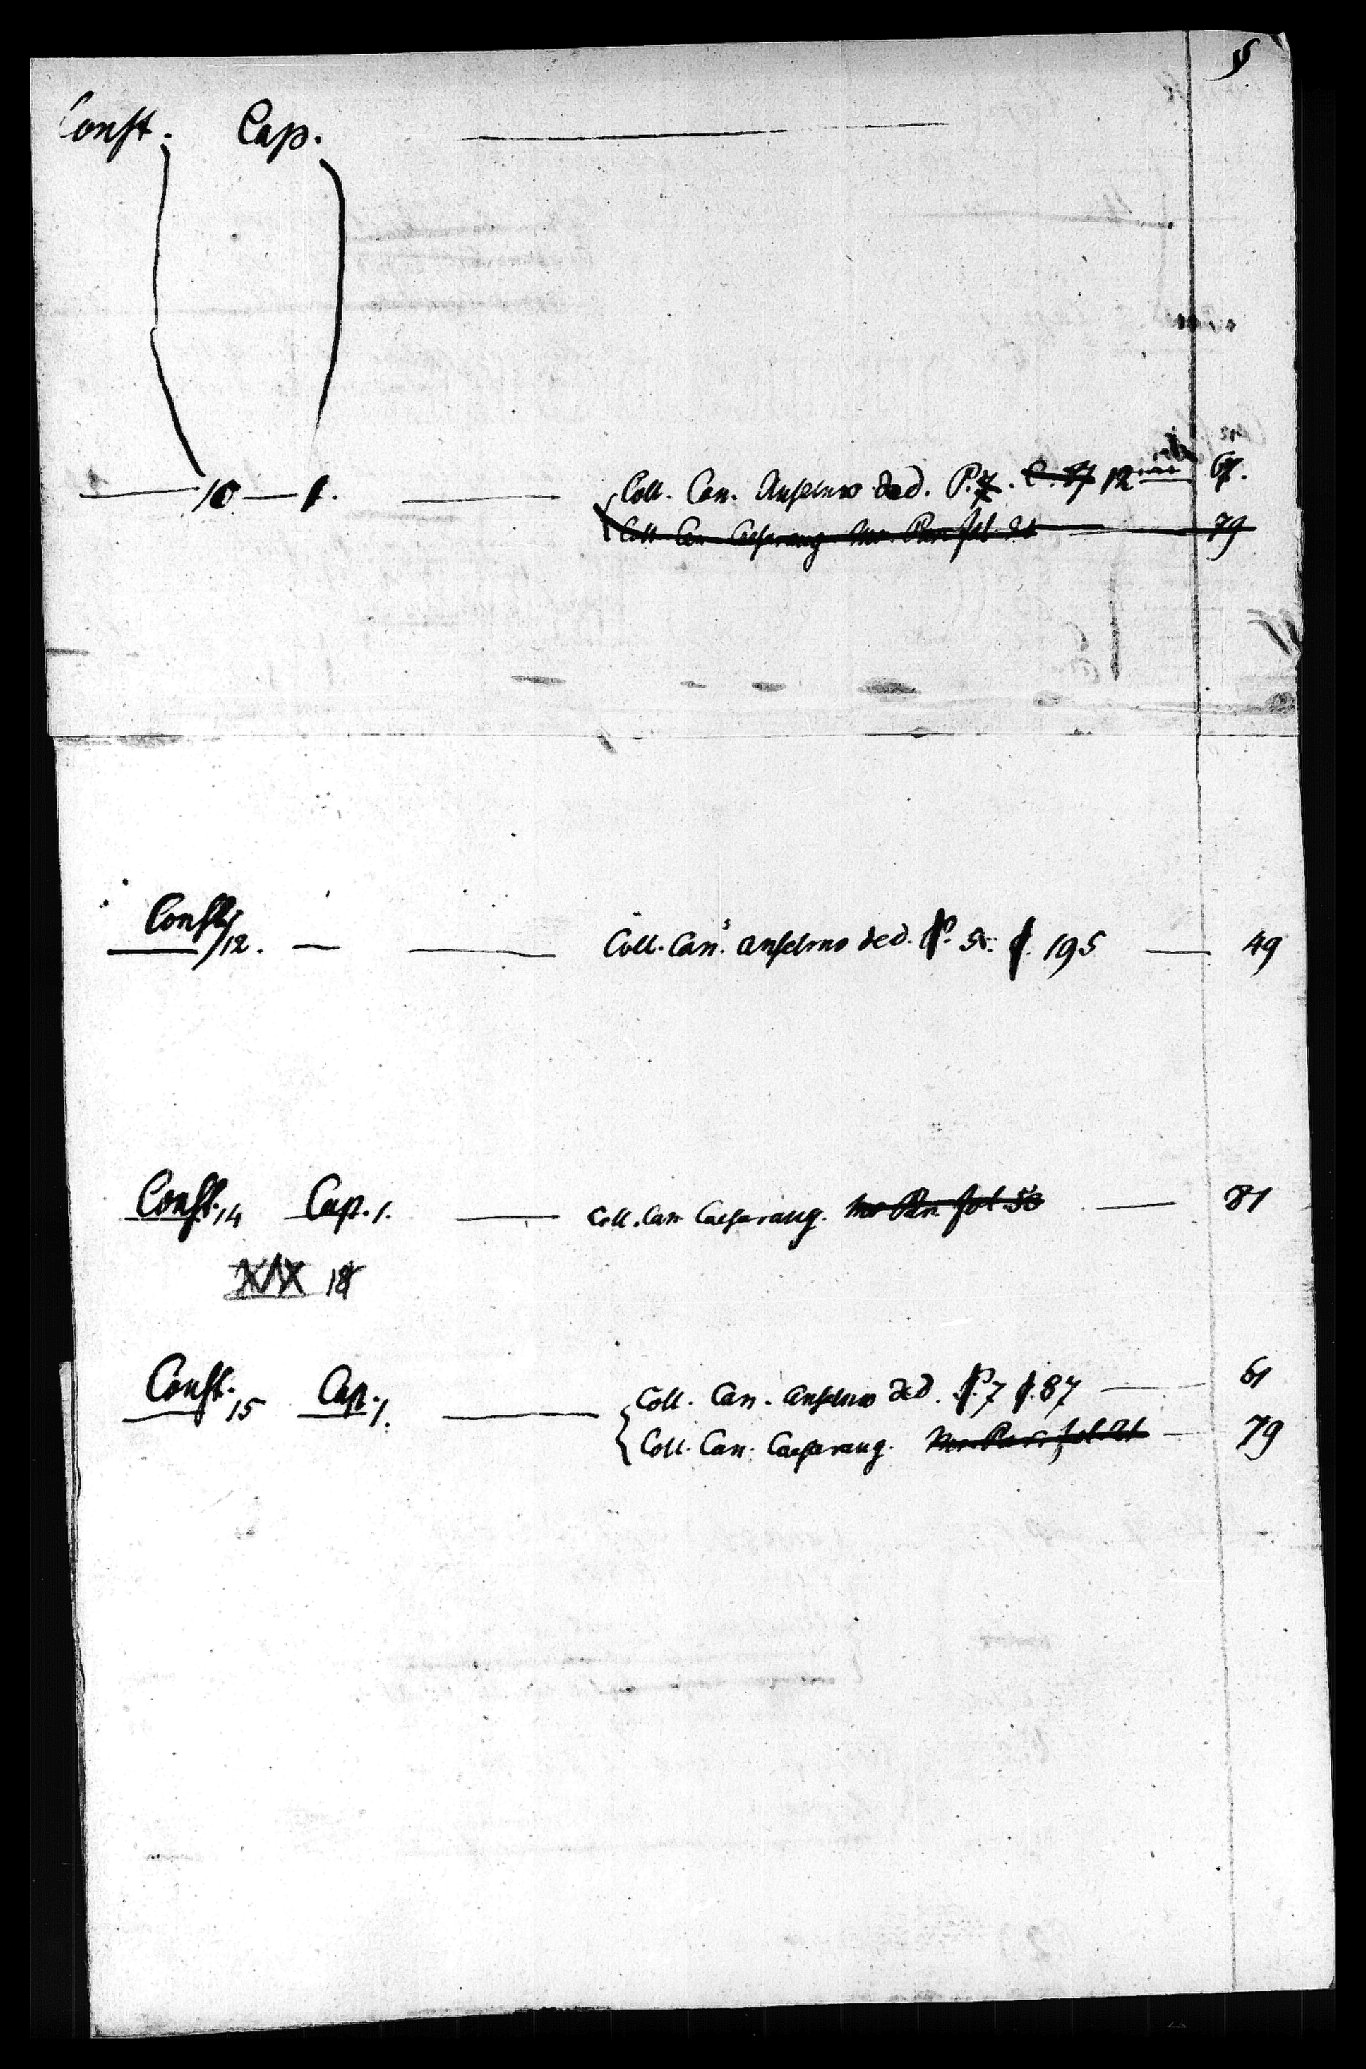 Const. Cap.
10 — 1. — Coll. Can. Anselmo ded. P. 7. C. 87 12 61.
Coll. Can. Caesaraug. Ms. Par. fol. 21 — 79
Const. 12. — — Coll. Can. Anselmo ded. P. 5. c. 195 — 49
Const. 14 Cap. 1. — Coll. Can. Caesaraug. Ms. Par. fol. 50 — 81
XIX 18
Const. 15 Cap. 1. — Coll. Can. Anselmo ded. P. 7 c. 87 — 61
Coll. Can. Caesaraug. Ms. Par. fol. 21 — 79